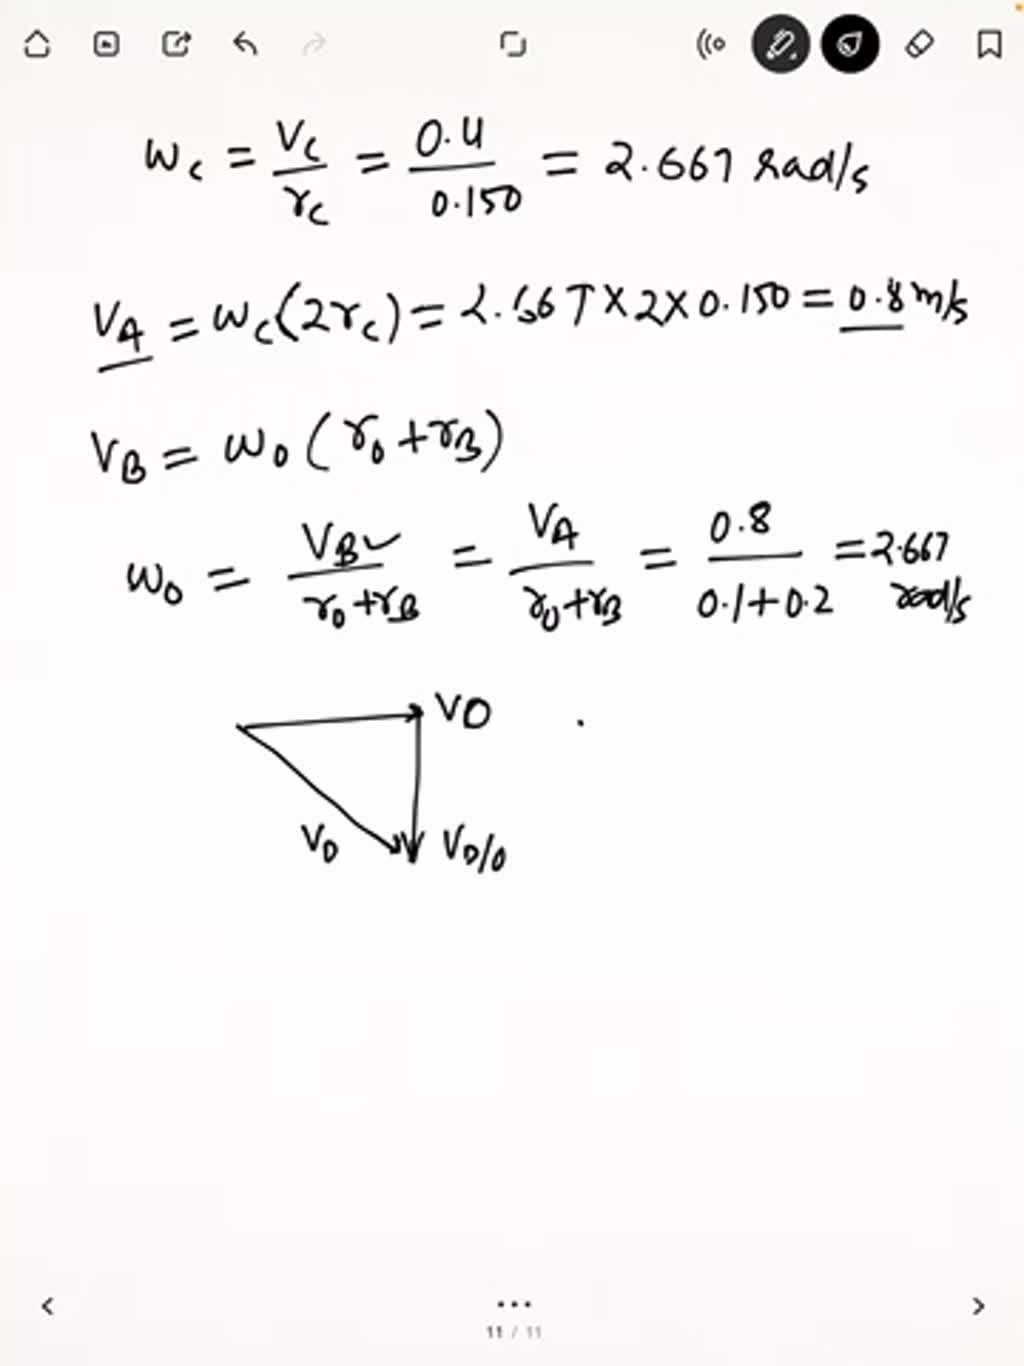 ω_c = V_c / r_c = 0.4 / 0.150 = 2.667 rad/s
V_A = ω_c(2r_c) = 2.667 × 2 × 0.150 = 0.8 m/s
V_B = ω_0 (r_0 + r_B)
ω_0 = V_B / (r_0 + r_B) = V_A / (r_0 + r_B) = 0.8 / (0.1 + 0.2) = 2.667 rad/s
V_O
V_D V_D/0
11 / 11